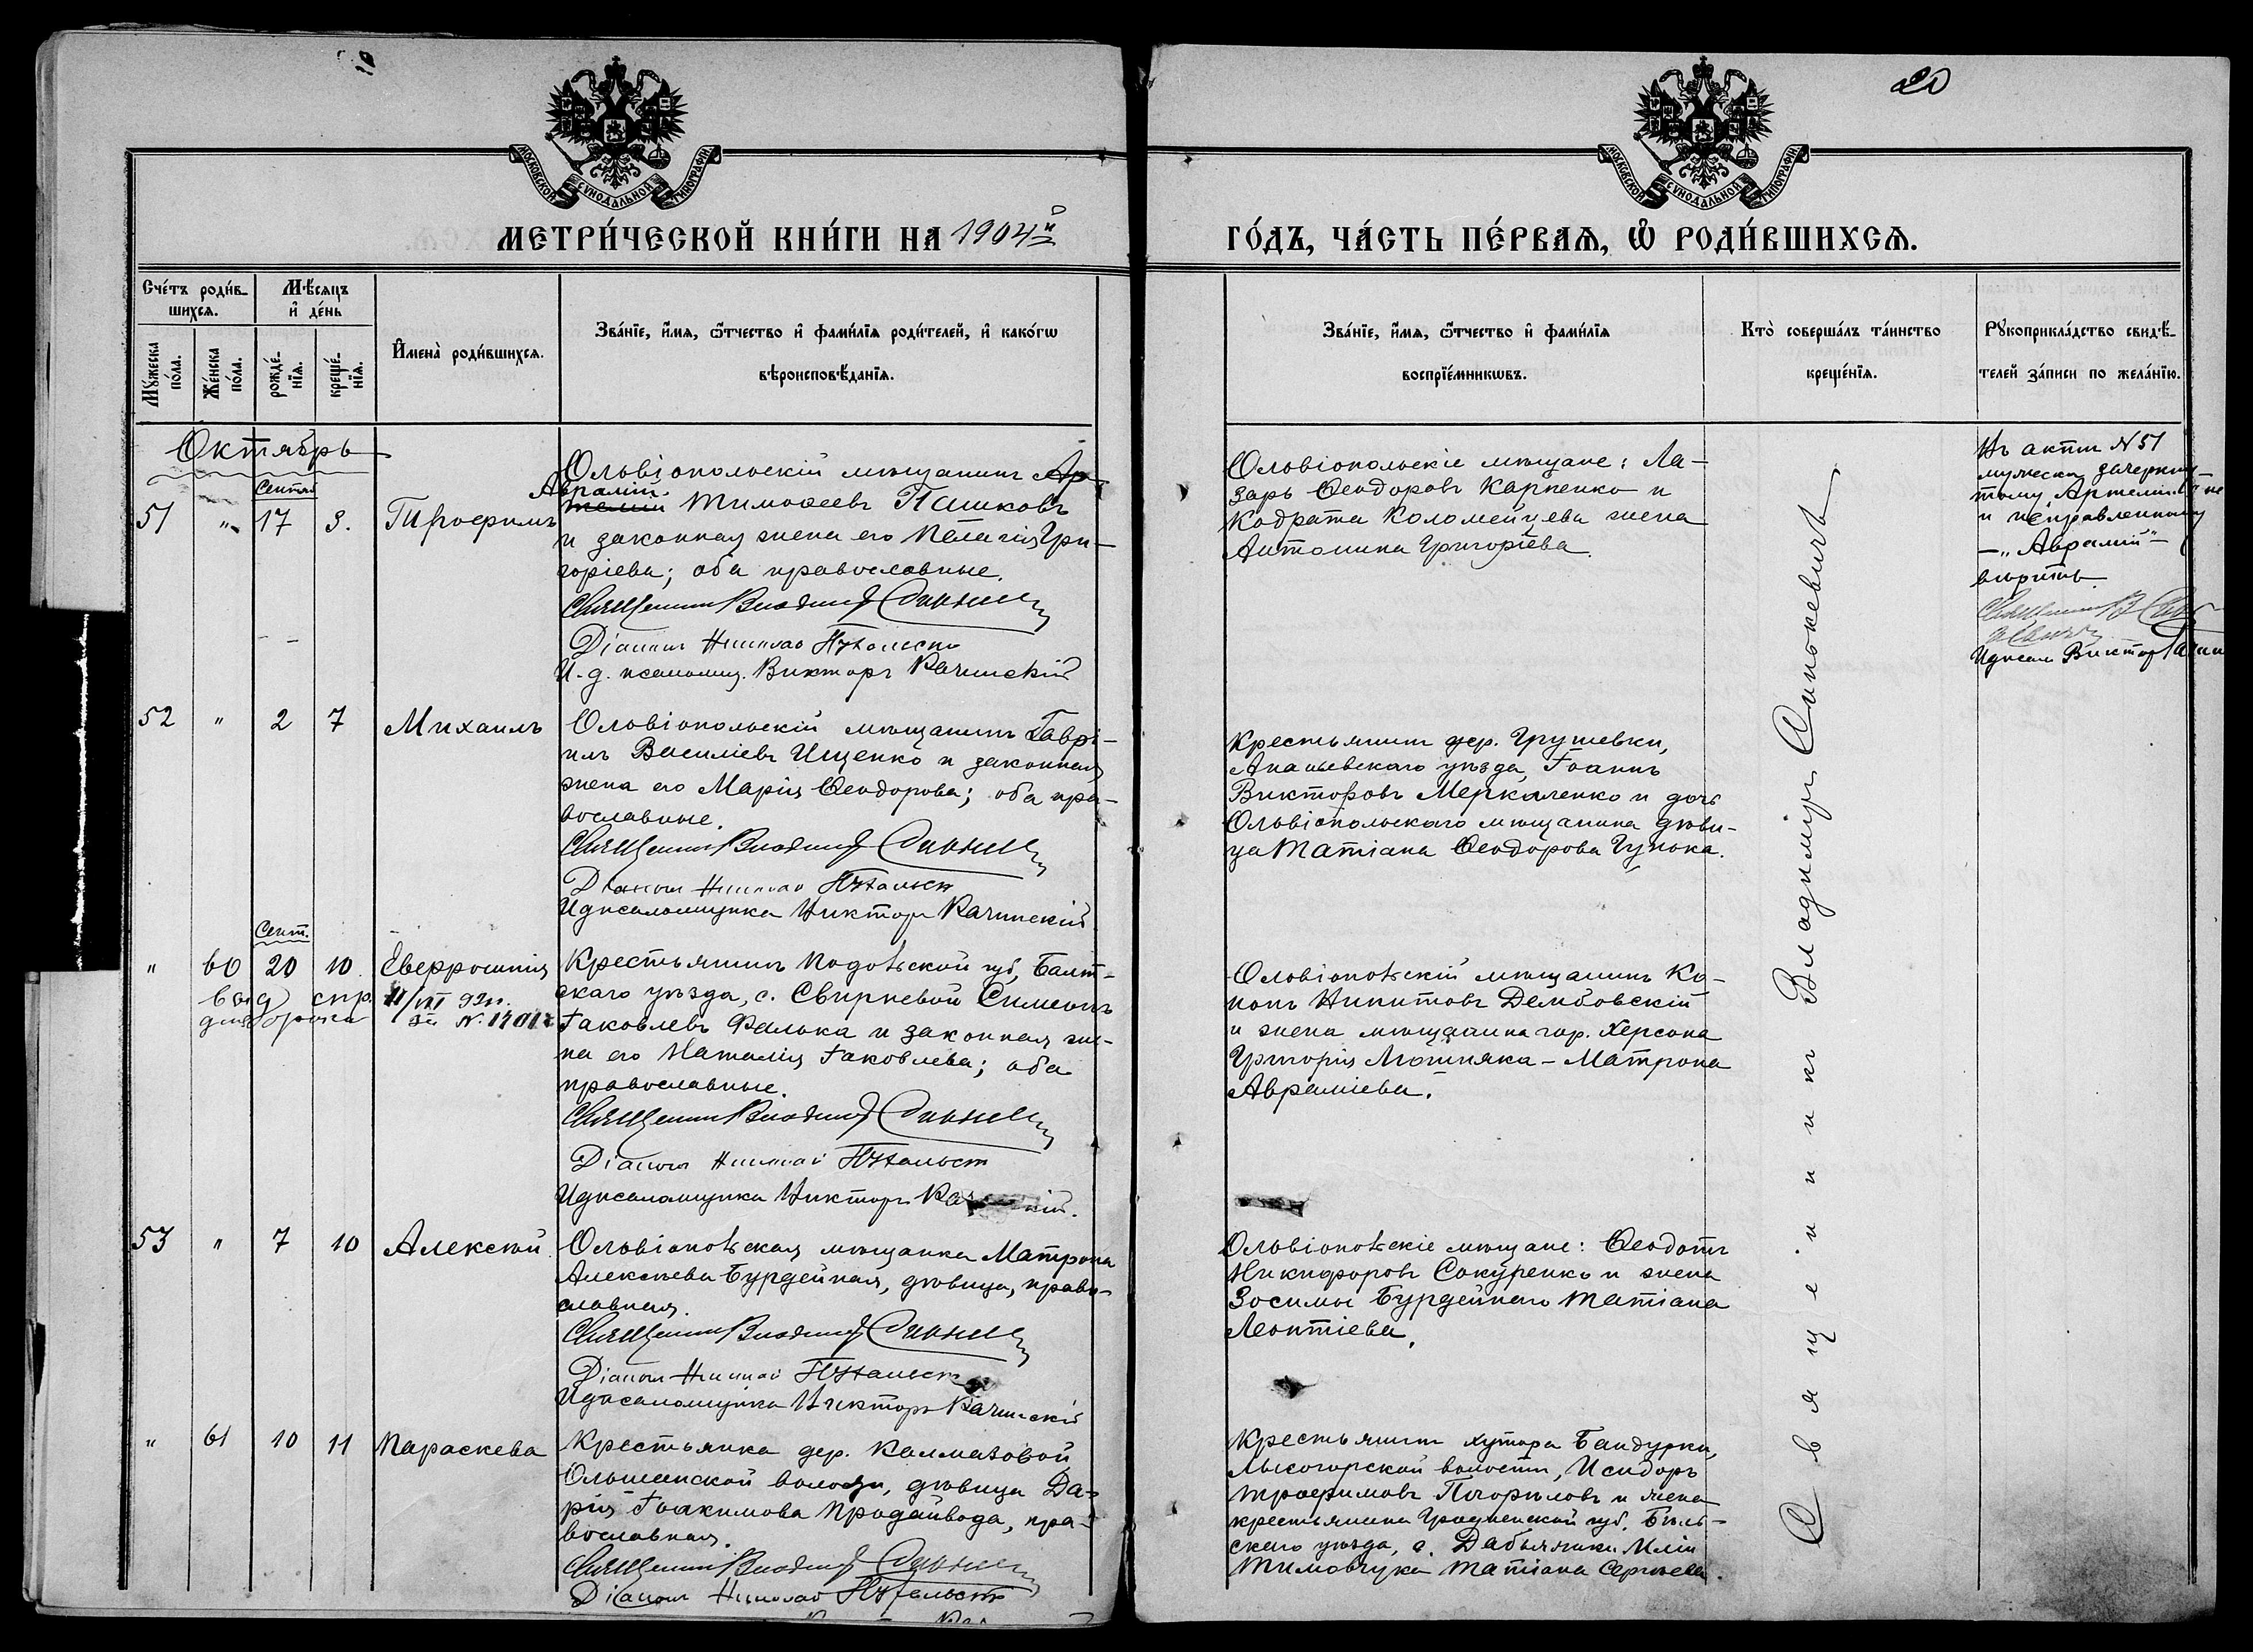 20
МОСКОВСКОЙ СѴНОДАЛЬНОЙ ТИПОГРАФІИ
МОСКОВСКОЙ СѴНОДАЛЬНОЙ ТИПОГРАФІИ
МЕТРИ́ЧЕСКОЙ КНИ́ГИ НА 1904й
ГО́ДЪ, ЧА́СТЬ ПЕ́РВАѦ, Ѡ҆ РОДИ́ВШИХСѦ.
Сче́тъ роди́в-
шихсѧ.
Мꙋ́жеска по́ла.
Же́нска по́ла.
Мѣ́сѧцъ
и҆ де́нь
рожде́-
нїѧ.
креще́-
нїѧ.
И҆мена̀ роди́вшихсѧ.
Зва́нїе, и҆́мѧ, ѻ҆́тчество и҆ фами́лїѧ роди́телей, и҆ како́гѡ
вѣроисповѣ́данїѧ.
Зва́нїе, и҆́мѧ, ѻ҆́тчество и҆ фами́лїѧ
воспрїе́мникѡвъ.
Кто̀ соверша́лъ та́инство
креще́нїѧ.
Рꙋкоприкла́дство свидѣ́-
телей за́писи по жела́нїю.
Октябрь
Сентяб
51 " 17 3. Трофимъ
Ольвіопольскій мѣщанинъ Ар-
Аврамій
темій Тимоѳеевъ Пашковъ
и законная жена его Пелагія Гри-
горіева; оба православные.
Священникъ Владиміръ Синькевичъ
Діаконъ Николай
И. д. псаломщ. Викторъ Качинскій
Ольвіопольскіе мѣщане: Ла-
зарь Ѳеодоровъ Карпенко и
Кодрата Коломейцева жена
Антонина Григоріева.
Въ актѣ N 51
мужеска зачеркну-
тому Артемій не
и исправленному
— "Аврамій" —
вѣрить.
Священникъ В.
Идпсал Викторъ
52 " 2 7 Михаилъ
Ольвіопольскій мѣщанинъ Гаврі-
илъ Василіевъ Ищенко и законная
жена его Марія Ѳеодорова; оба пра-
вославные.
Священникъ Владиміръ Синькевичъ
Діаконъ Николай
Идпсаломщика Викторъ Качинскій
Крестьянинъ дер. Грушевки,
Ананьевскаго уѣзда, Іоаннъ
Викторовъ Меркаленко и дочь
Ольвіопольскаго мѣщанина дѣви-
ца Татіана Ѳеодорова Гунька.
Сент.
" 60 20 10 Евфросинія
Крестьянинъ Подольской губ, Балт-
скаго уѣзда, с. Свирневой Симеонъ
Іаковлевъ Фалька и законная же-
на его Наталія Іаковлева; оба
православные.
Священникъ Владиміръ Синькевичъ
Діаконъ Николай
Идпсаломщика Викторъ
Ольвіопольскій мѣщанинъ Ко-
нонъ Никитовъ Дембовскій
и жена мѣщанина гор. Херсона
Григорія Мошняка — Матрона
Авраміева.
53 " 7 10 Алексій
Ольвіопольская мѣщанка Матрона
Алексѣева Бурдейная, дѣвица, право-
славная.
Священникъ Владиміръ Синькевичъ
Діаконъ Николай
Идпсаломщика Викторъ Качинскій
Ольвіопольскіе мѣщане: Ѳеодотъ
Никифоровъ Сокуренко и жена
Зосимы Бурдейнаго Татіана
Леонтіева.
" 61 10 11 Параскева
Крестьянка дер. Калмазовой
Ольшанской волости, дѣвица Да-
рія Іоакимова Продайвода, пра-
вославная.
Священникъ Владиміръ Синькевичъ
Діаконъ Николай
Крестьянинъ хутора Бандурки,
Лысогорской волости, Исидоръ
Трофимовъ Погорѣловъ и жена
крестьянина Гродненской губ. Бѣль-
скаго уѣзда, с. Иліи
Тимовчука Татіана Сергѣева.
Священникъ Владиміръ Синькевичъ